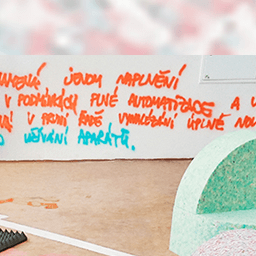 JENOM NAPLNĚNÍ
V PODMÍNKÁCH PLNÉ AUTOMATIZACE A
V PRVNÍ ŘADĚ VYNALÉZÁNÍ ÚPLNĚ
UŽÍVÁNÍ APARÁTŮ.